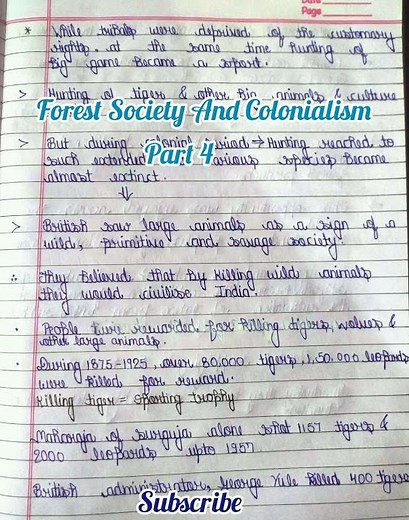 Date
Page
* While tribals were deprived of the customary
rights. at the same time hunting of
Big game became a sport.
> Hunting of tiger & other big animals & culture
Forest Society And Colonialism
> But during colonial period ⇒ Hunting reached to
Part 4
such extended various species became
almost extinct.
⇓
> British saw large animals as a sign of a
wild, primitive and savage society
∴ they believed that by killing wild animals
they would civilise India.
• People were rewarded for killing tigers, wolves &
other large animals.
• During 1875-1925, over 80,000 tigers, 1,50,000 leopards
were killed for reward.
Killing tiger = sporting trophy
Maharaja of surguja alone shot 1157 tigers &
2000 leopards upto 1957
British administrator, George Yule killed 400 tigers
Subscribe